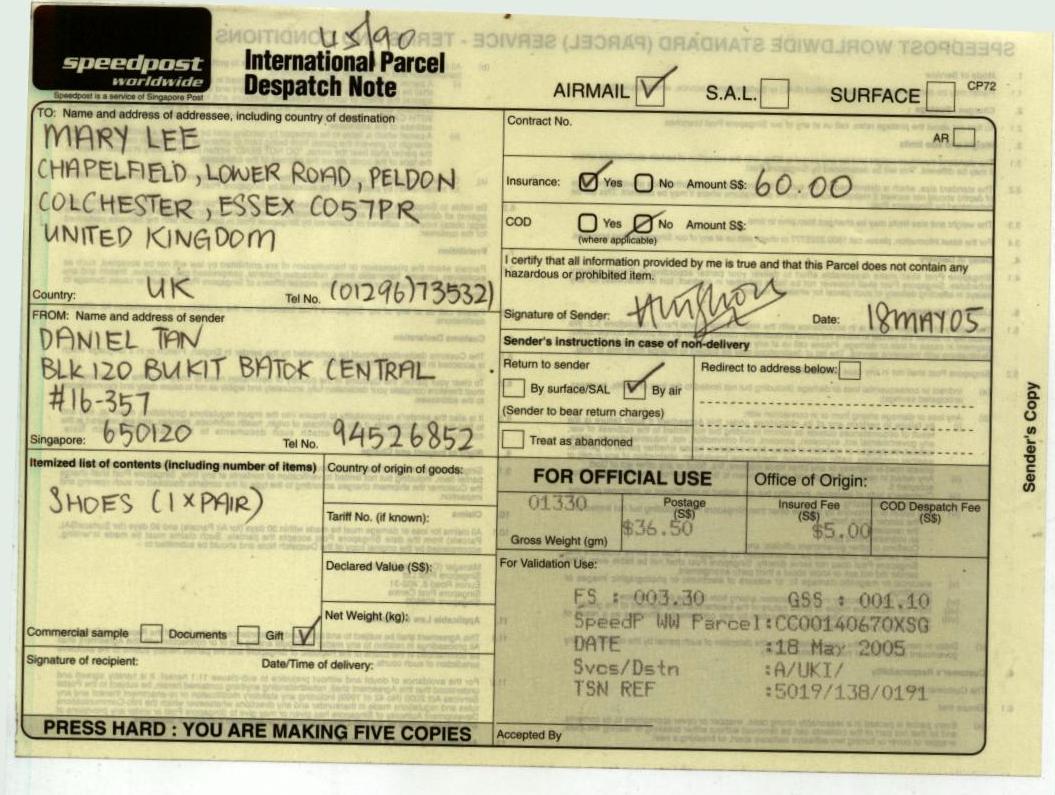 US/90
speedpost
worldwide
Speedpost is a service of Singapore Post
International Parcel
Despatch Note
AIRMAIL S.A.L. SURFACE CP72
TO: Name and address of addressee, including country of destination
MARY LEE
CHAPELFIELD, LOWER ROAD, PELDON
COLCHESTER, ESSEX CO57PR
UNITED KINGDOM
Country: UK Tel No. (01296)73532)
FROM: Name and address of sender
DANIEL TAN
BLK 120 BUKIT BATOK CENTRAL
#16-357
Singapore: 650120 Tel No. 94526852
Itemized list of contents (including number of items)
SHOES (1 x PAIR)
Country of origin of goods:
Tariff No. (if known):
Declared Value (S$):
Net Weight (kg):
Commercial sample Documents Gift
Signature of recipient: Date/Time of delivery:
PRESS HARD : YOU ARE MAKING FIVE COPIES
Contract No.
AR
Insurance: Yes No Amount S$: 60.00
COD Yes No Amount S$:
(where applicable)
I certify that all information provided by me is true and that this Parcel does not contain any
hazardous or prohibited item.
Signature of Sender: Date: 18MAY05
Sender's instructions in case of non-delivery
Return to sender
By surface/SAL By air
(Sender to bear return charges)
Treat as abandoned
Redirect to address below:
FOR OFFICIAL USE Office of Origin:
01330
Gross Weight (gm)
Postage
(S$)
$36.50
Insured Fee
(S$)
$5.00
COD Despatch Fee
(S$)
For Validation Use:
FS : 003.30 GSS : 001.10
SpeedP WW Parcel:CC00140670XSG
DATE :18 May 2005
Svcs/Dstn :A/UKI/
TSN REF :5019/138/0191
Accepted By
Sender's Copy